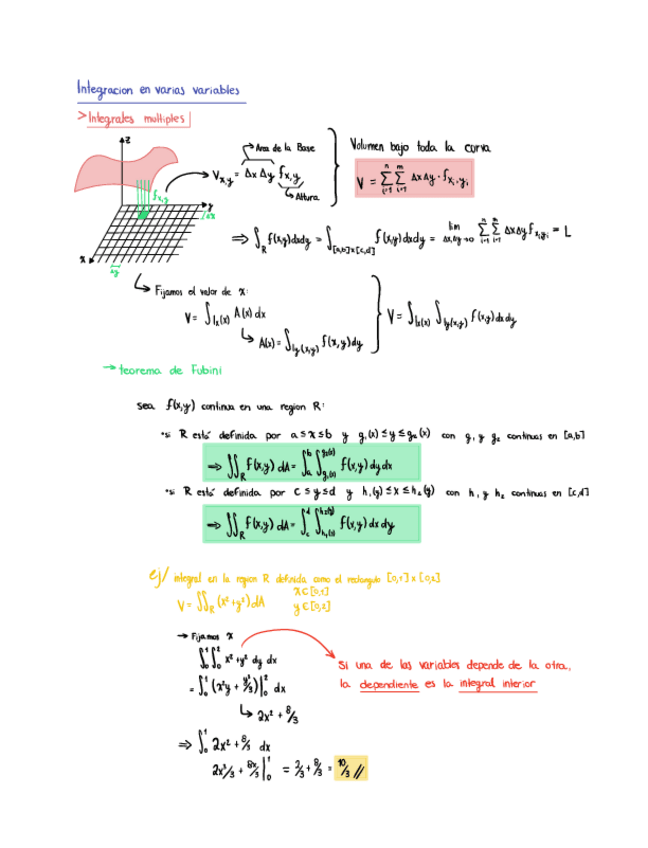 Integracion en varias variables
> Integrales multiples
z
y
x
f x,y
Δx
Δy
Area de la Base
V x,y = Δx Δy f x,y
Altura
Volumen bajo toda la curva
V = ∑ⁿᵢ₌₁ ∑ᵐᵢ₌₁ ΔxΔy · f xᵢ,yᵢ
⇒ ∫_R f(x,y)dxdy = ∫_[a,b]x[c,d] f(x,y)dxdy = lim Δx,Δy→0 ∑ⁿᵢ₌₁ ∑ᵐᵢ₌₁ ΔxΔy f xᵢyᵢ = L
Fijamos el valor de x:
V = ∫_Ix(x) A(x) dx
A(x) = ∫_Iy(x,y) f(x,y)dy
V = ∫_Ix(x) ∫_Iy(x,y) f(x,y)dxdy
→ teorema de Fubini
sea f(x,y) continua en una region R:
•si R está definida por a≤x≤b y g₁(x)≤y≤g₂(x) con g₁ y g₂ continuas en [a,b]
⇒ ∬_R f(x,y) dA = ∫_a^b ∫_g₁(x)^g₂(x) f(x,y) dy dx
•si R está definida por c≤y≤d y h₁(y)≤x≤h₂(y) con h₁ y h₂ continuas en [c,d]
⇒ ∬_R f(x,y) dA = ∫_c^d ∫_h₁(y)^h₂(y) f(x,y) dx dy
ej/ integral en la region R definida como el rectangulo [0,1] x [0,2]
V = ∬_R (x²+y²)dA
x∈[0,1]
y∈[0,2]
→ Fijamos x
∫₀¹∫₀² x²+y² dy dx
= ∫₀¹ (x²y + y³/3)|₀² dx
2x² + 8/3
⇒ ∫₀¹ 2x² + 8/3 dx
2x³/3 + 8x/3 |₀¹ = 2/3 + 8/3 = 10/3 //
Si una de las variables depende de la otra,
la dependiente es la integral interior